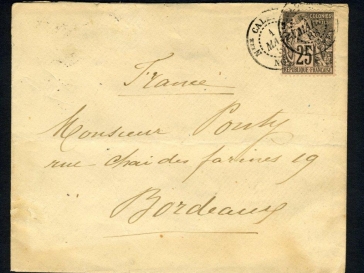 Nelle CAL
COLONIES
25
RÉPUBLIQUE FRANÇAISE
France
Monsieur Pouty
rue chai des farines 19
Bordeaux